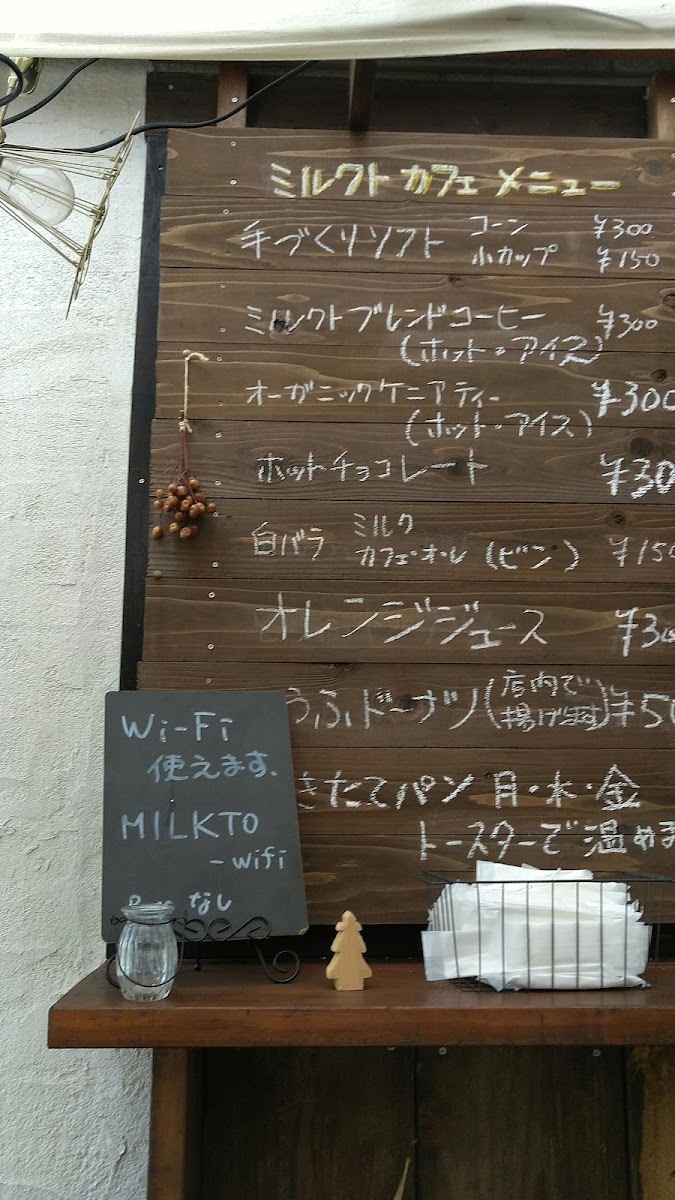 ミルクト カフェ メニュー
手づくりソフト コーン ¥300
小カップ ¥150
ミルクトブレンドコーヒー ¥300
(ホット・アイス)
オーガニックケニアティー ¥300
(ホット・アイス)
ホットチョコレート ¥30
白バラ ミルク
カフェ・オ・レ (ビン) ¥150
オレンジジュース ¥30
うふドーナツ (店内で揚げてます) ¥50
きたてパン 月・木・金
トースターで温めま
Wi-Fi
使えます.
MILKTO
-wifi
なし